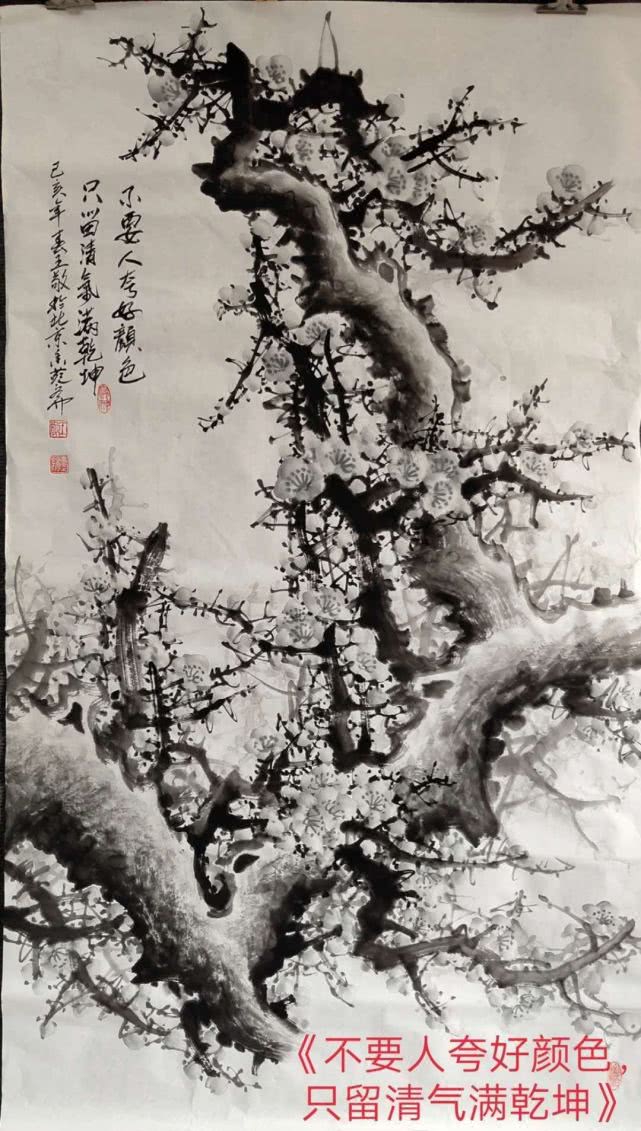 不要人夸好顔色
只留清氣满乾坤
己亥年春王敬於北京
《不要人夸好颜色，
只留清气满乾坤》